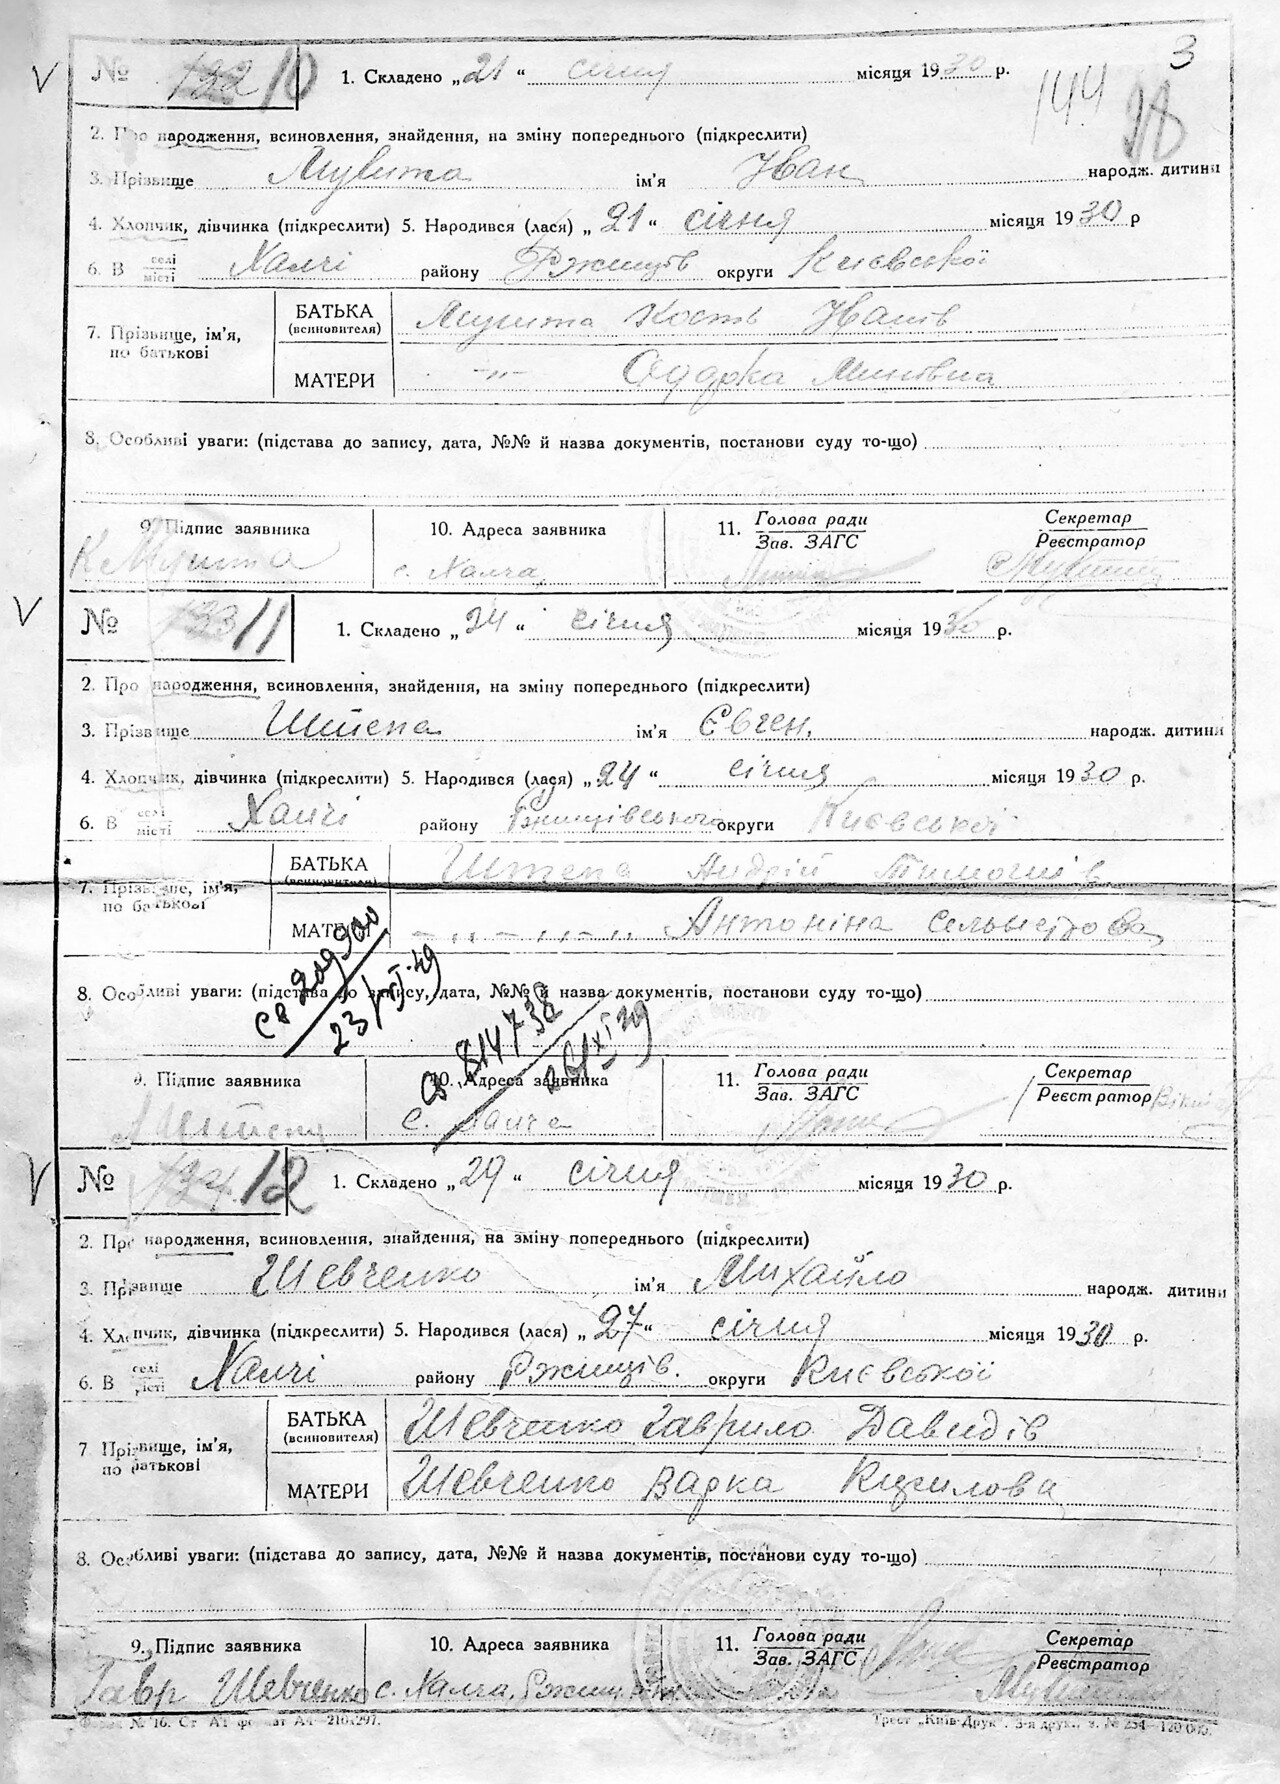 3
144
28
№ 132 10 1. Складено „21“ січня місяця 1930 р.
2. Про народження, всиновлення, знайдення, на зміну попереднього (підкреслити)
3. Прізвище ім'я Іван народж. дитини
4. Хлопчик, дівчинка (підкреслити) 5. Народився (лася) „21“ січня місяця 1930 р
6. В селі Халчі району Ржищів округи Києвської
місті
7. Прізвище, ім'я, по батькові
БАТЬКА (всиновителя) Кость Іванів
МАТЕРИ -„- Одарка Минівна
8. Особливі уваги: (підстава до запису, дата, №№ й назва документів, постанови суду то-що)
9. Підпис заявника 10. Адреса заявника 11. Голова ради Секретар
Зав. ЗАГС Реєстратор
с. Халча
№ 133 11 1. Складено „24“ січня місяця 1930 р.
2. Про народження, всиновлення, знайдення, на зміну попереднього (підкреслити)
3. Прізвище Штепа ім'я Євген. народж. дитини
4. Хлопчик, дівчинка (підкреслити) 5. Народився (лася) „24“ січня місяця 1930 р.
6. В селі Халчі району Ржищівського округи Києвської
місті
7. Прізвище, ім'я, по батькові
БАТЬКА (всиновителя) Штепа Андрій Тимошів
МАТЕРИ -„-„-„ Антоніна Сельвестрова
8. Особливі уваги: (підстава до запису, дата, №№ й назва документів, постанови суду то-що)
св 209300
23/VI-49
св 814738
9. Підпис заявника 10. Адреса заявника 11. Голова ради Секретар
Зав. ЗАГС Реєстратор
А Штепа с. Халча
№ 134 12 1. Складено „29“ січня місяця 1930 р.
2. Про народження, всиновлення, знайдення, на зміну попереднього (підкреслити)
3. Прізвище Шевченко ім'я Михайло народж. дитини
4. Хлопчик, дівчинка (підкреслити) 5. Народився (лася) „27“ січня місяця 1930 р.
6. В селі Халчі району Ржищів. округи Києвської
місті
7 Прізвище, ім'я, по батькові
БАТЬКА (всиновителя) Шевченко Гаврило Давидів
МАТЕРИ Шевченко Варка Кирилова
8. Особливі уваги: (підстава до запису, дата, №№ й назва документів, постанови суду то-що)
9. Підпис заявника 10. Адреса заявника 11. Голова ради Секретар
Зав. ЗАГС Реєстратор
Гавр Шевченко с. Халча, Ржищ.
Форма № 16. Ст. А4 формат А4—210×297. Трест „Київ-Друк“. 3-я друк., з. № 254—120.000.